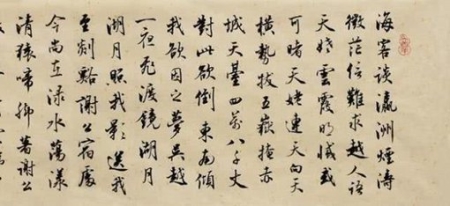 海客談瀛洲煙濤
微茫信難求越人語
天姥雲霞明滅或
可睹天姥連天向天
橫勢拔五嶽掩赤
城天臺四萬八千丈
對此欲倒東南傾
我欲因之夢吳越
一夜飛渡鏡湖月
湖月照我影送我
至剡谿謝公宿處
今尚在淥水蕩漾
清猿啼腳著謝公